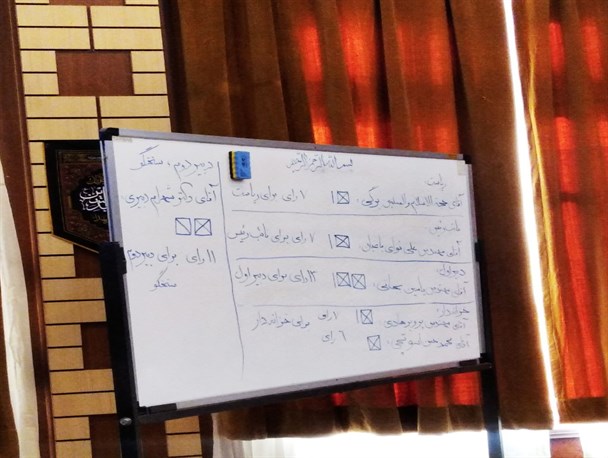 بسم الله الرحمن الرحیم
ریاست
آقای حجة الاسلام والمسلمین ترکی: ۱ رای برای ریاست
نائب رئیس
آقای مهندس علی : ۱ رای برای نائب رئیس
دبیر اول:
آقای مهندس یاسین : ۱۲ رای برای دبیر اول
خزانه دار:
آقای مهندس پرویز هادی: ۷ رای برای خزانه دار
آقای محمد : ۶ رای
دبیر دوم، سخنگو
آقای دکتر شهرام دبیری
۱۱ رای برای دبیر دوم
سخنگو